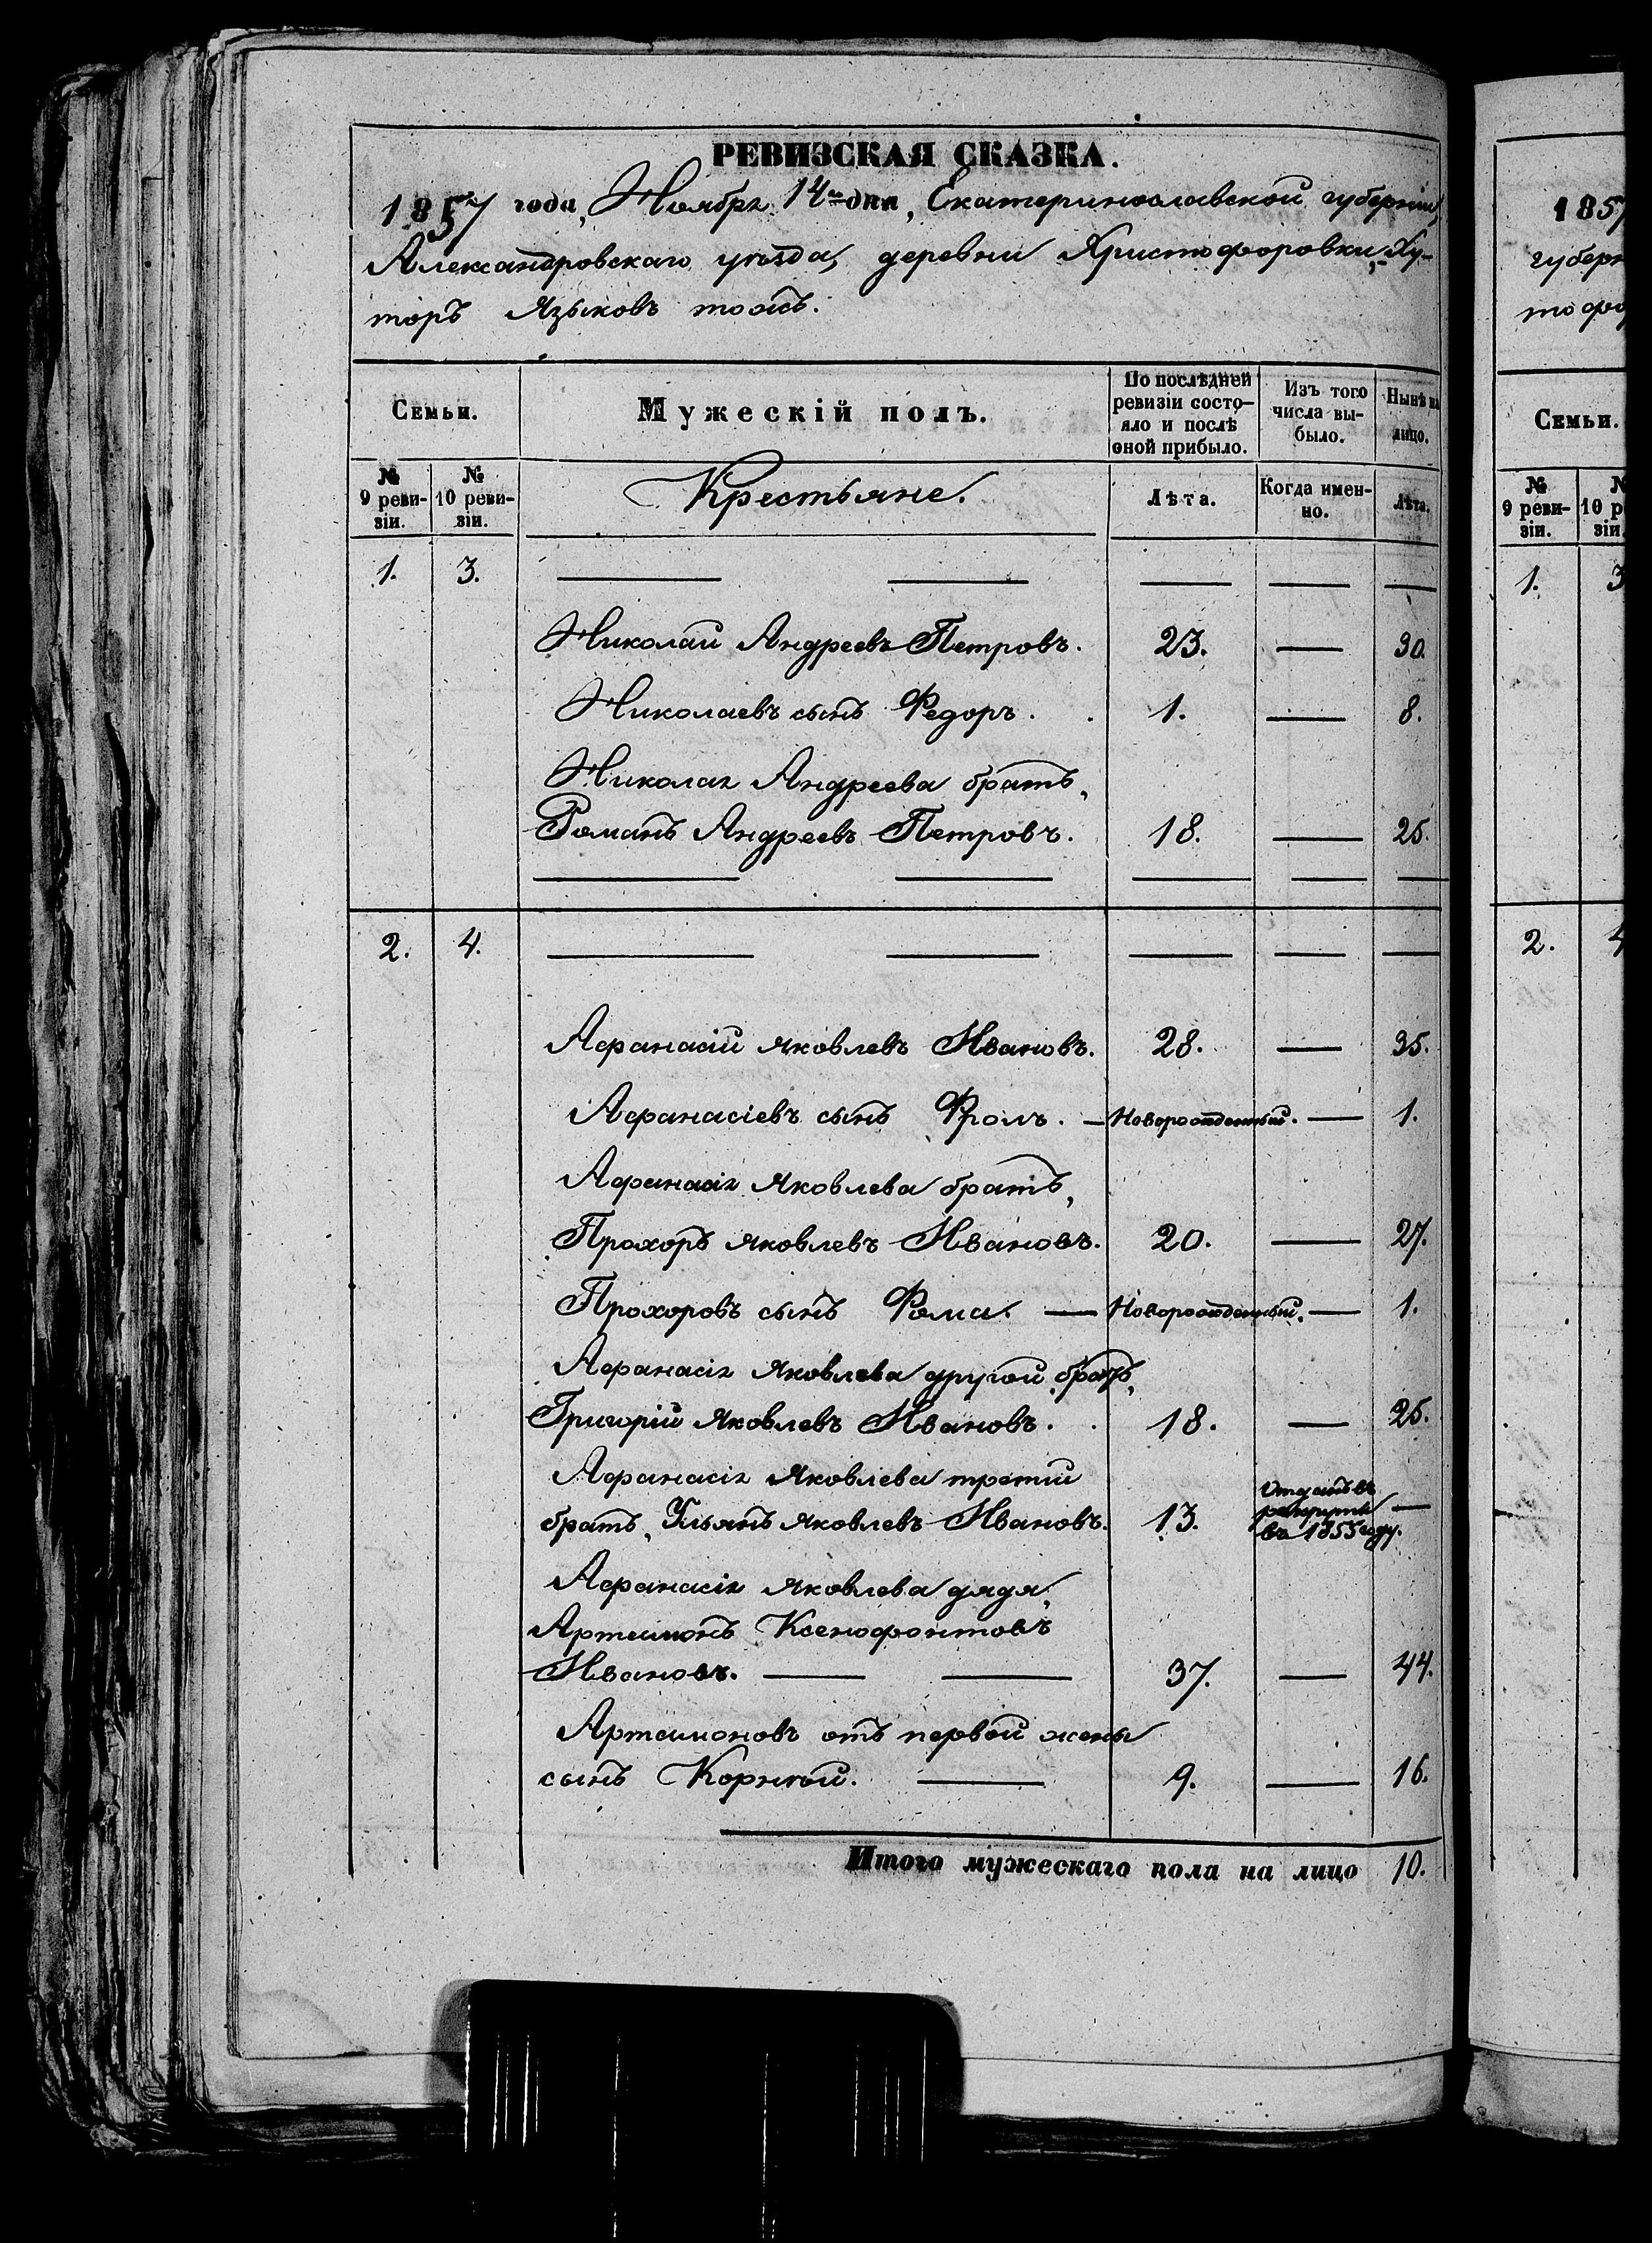 РЕВИЗСКАЯ СКАЗКА.
1857 года, Ноября 14го дня, Екатеринославской губерніи,
Александровскаго уѣзда, деревни Христофоровки, Ху-
торъ Языковъ тожъ.
Семьи.
Мужескій полъ.
По послѣдней ревизіи состо-яло и послѣ оной прибыло.
Изъ того числа вы-было.
Нынѣ на лицо.
№ 9 реви-зіи.
№ 10 реви-зіи.
Крестьяне.
Лѣта.
Когда имен-но.
Лѣта.
1. 3.
Николай Андреевъ Петровъ. 23. — 30.
Николаевъ сынъ Федоръ. 1. — 8.
Николая Андреева братъ,
Романъ Андреевъ Петровъ. 18. — 25.
2. 4.
Афанасій Яковлевъ Ивановъ. 28. — 35.
Афанасіевъ сынъ Фролъ. — Новорожденный. — 1.
Афанасія Яковлева братъ,
Прохоръ Яковлевъ Ивановъ. 20. — 27.
Прохоровъ сынъ Фома. — Новорожденный. — 1.
Афанасія Яковлева другой братъ,
Григорій Яковлевъ Ивановъ. 18. — 25.
Афанасія Яковлева третій
братъ, Ульянъ Яковлевъ Ивановъ. 13. Отданъ въ рекруты въ 1855 году. —
Афанасія Яковлева дядя,
Артемонъ Ксенофонтовъ
Ивановъ. — — 37. — 44.
Артемоновъ отъ первой жены
сынъ Корнѣй. — 9. — 16.
Итого мужескаго пола на лицо 10.
1857
губерн
тофо
Семьи.
№ 9 реви-зіи.
1. 3
2. 4